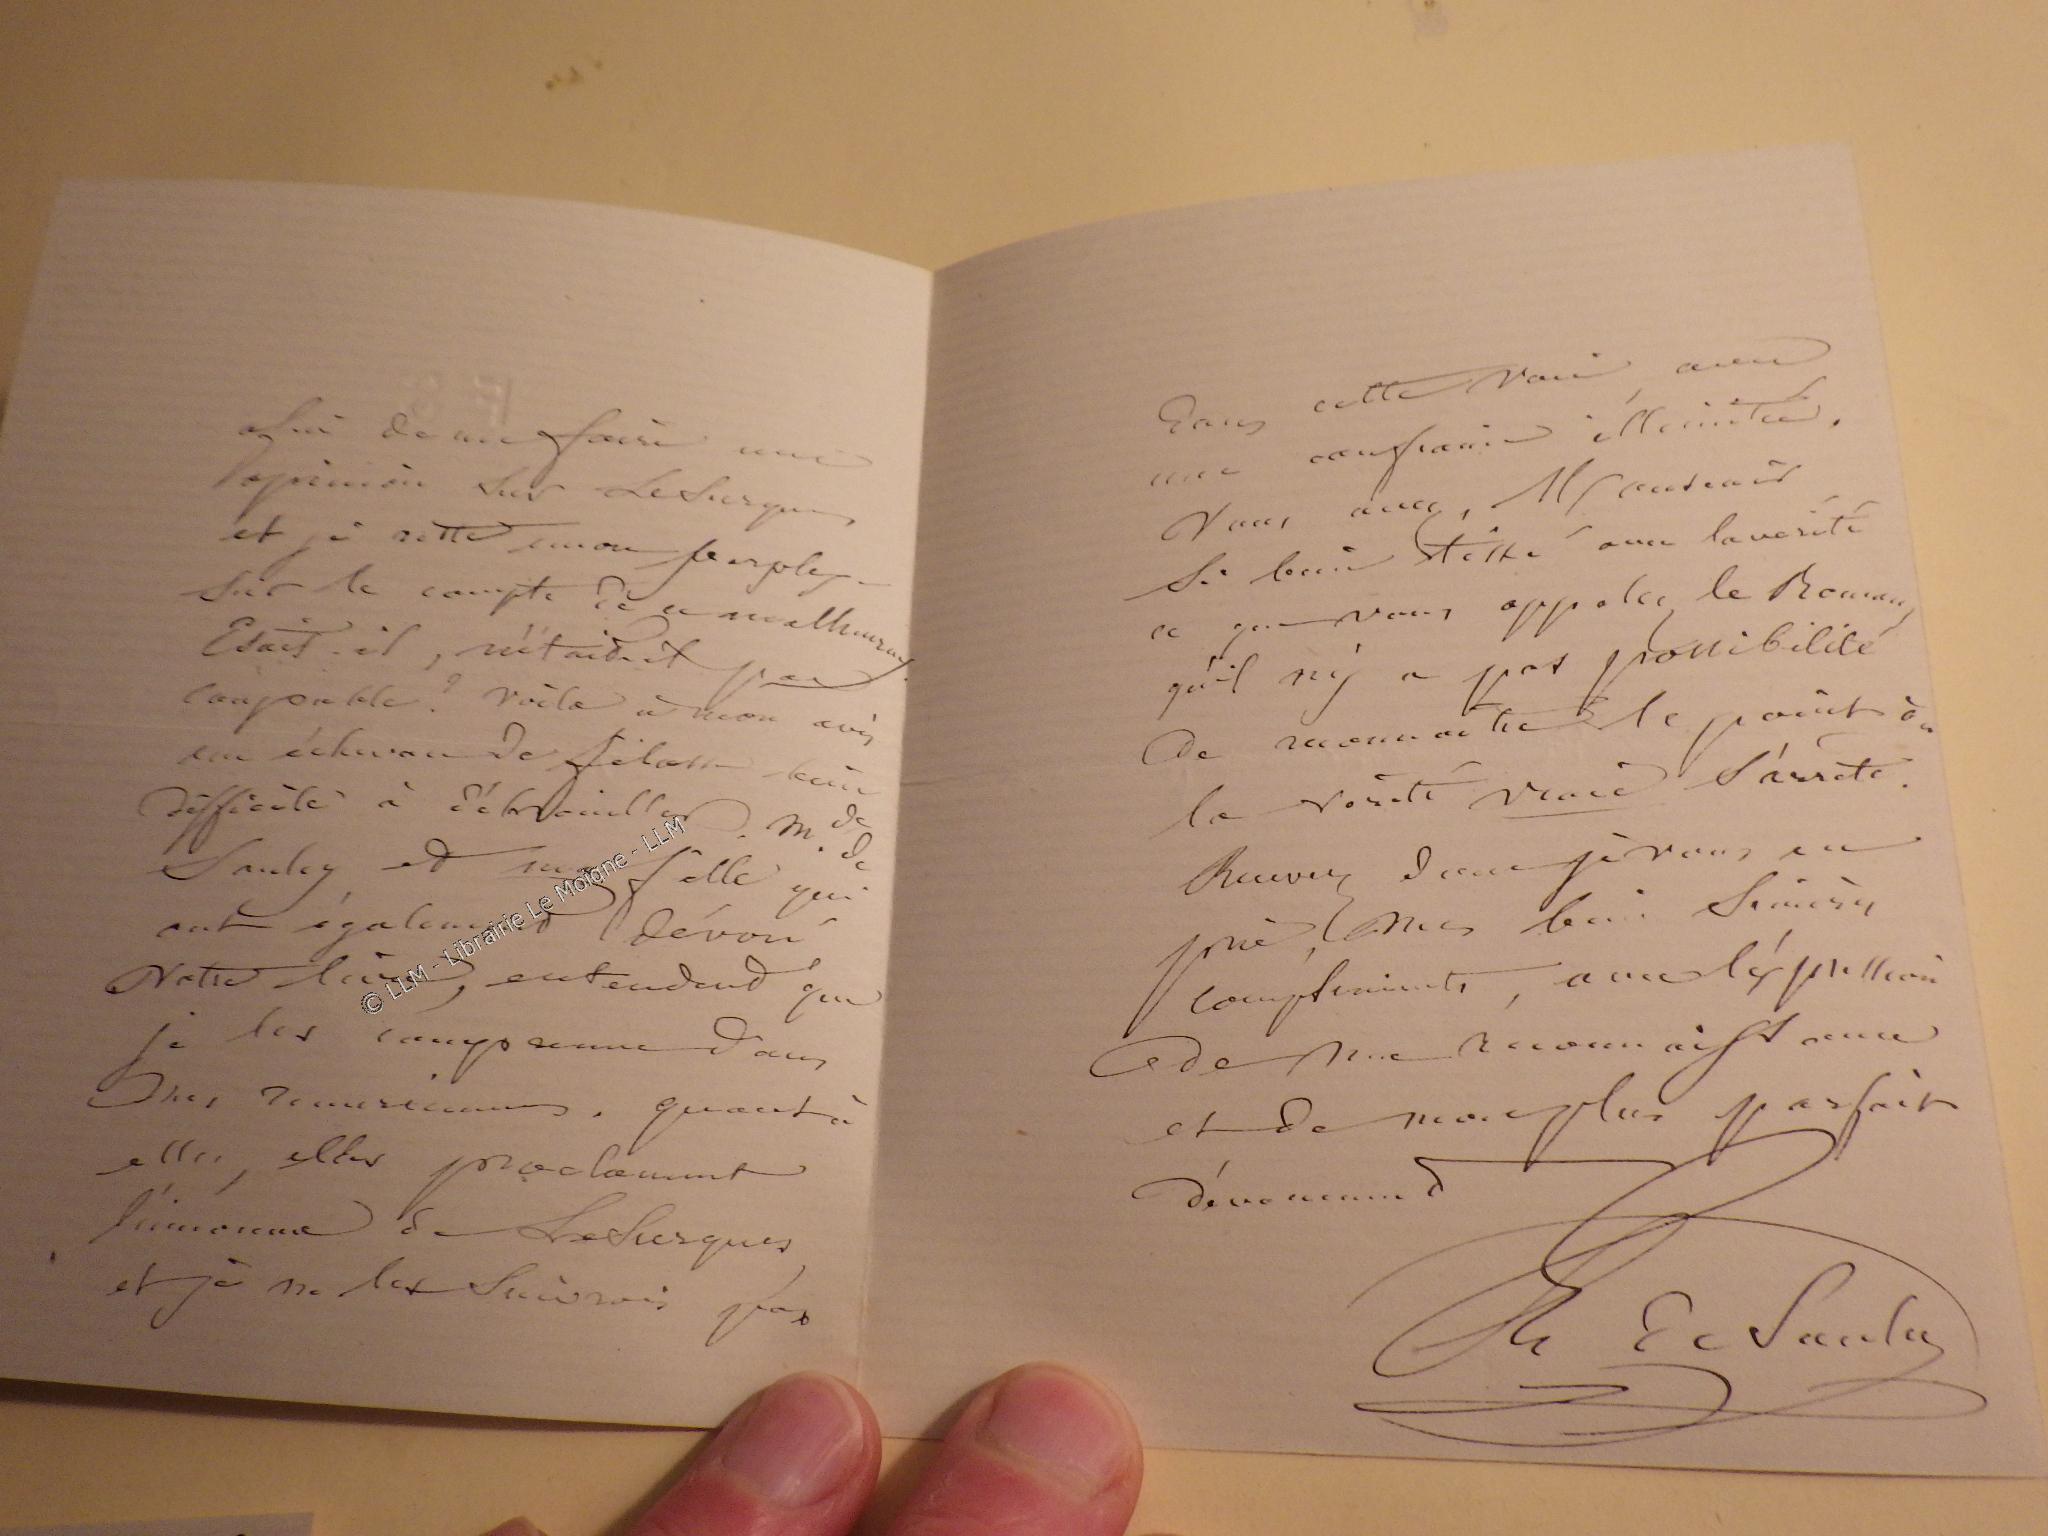 afin de me faire une
opinion sur LeSurques,
et je reste encore perplexe
sur le compte de ce malheureux.
Etait-il, n'était-il pas
coupable? Voila à mon avis
un écheveau de filasse bien
difficile à débrouiller. Mde de
Saulcy, et ma fille qui
ont également dévoré
Votre livre, entendent que
je les comprenne dans
mes remerciemens. quant à
elles, elles proclament
l'innocence de LeSurques,
et je ne les suivrais pas
Dans cette voie, avec
une confiance illimitée.
Vous avez, Monsieur
si bien tissé avec la vérité
ce que vous appelez le Roman,
qu'il n'y a pas possibilité
de reconnaitre le point où
la vérité vraie s'arrête.
Recevez donc je vous en
prie, mes bien sincères
compliments, avec l'éxpression
de ma reconnaissance
et de mon plus parfait
dévouement
F de Saulcy
FS
© LLM - Librairie Le Moigne - LLM